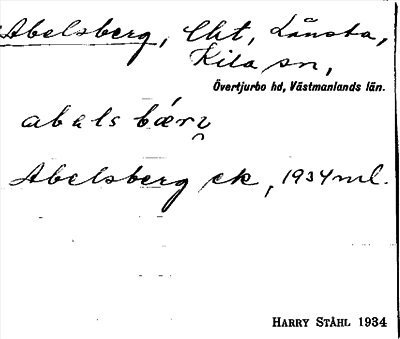 Abelsberg, lht, Länsta,
Kila sn,
Övertjurbo hd, Västmanlands län.
abels bærg
Abelsberg ek, 1934 ml.
HARRY STÅHL 1934